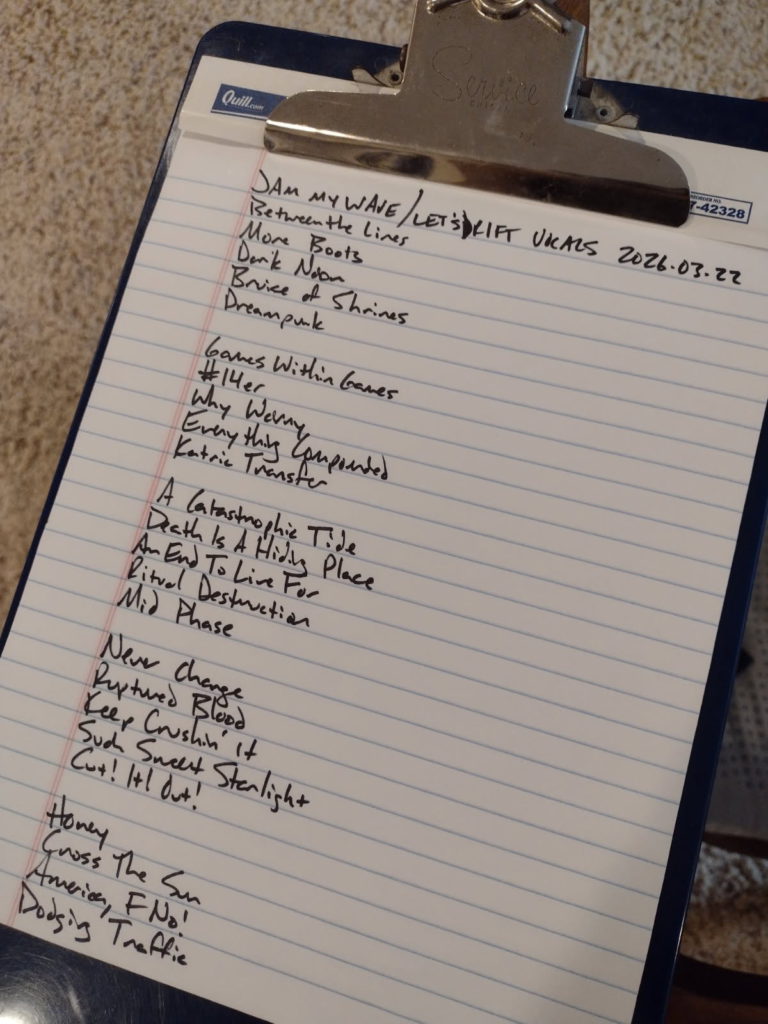 Service
Quill.com
REORDER NO.
7-42328
JAM MY WAVE/LET'S DRIFT VOCALS 2026.03.22
Between the Lines
More Boots
Dark Noon
Bruice of Shrines
Dreampunk
Games Within Games
#14er
Why Worry
Everything Compounded
Katric Transfer
A Catastrophic Tide
Death Is A Hiding Place
An End To Live For
Ritual Destruction
Mid Phase
Never Change
Ruptured Blood
Keep Crushin' it
Such Sweet Starlight
Cut! It! Out!
Honey
Cross The Sun
America, F No!
Dodging Traffic